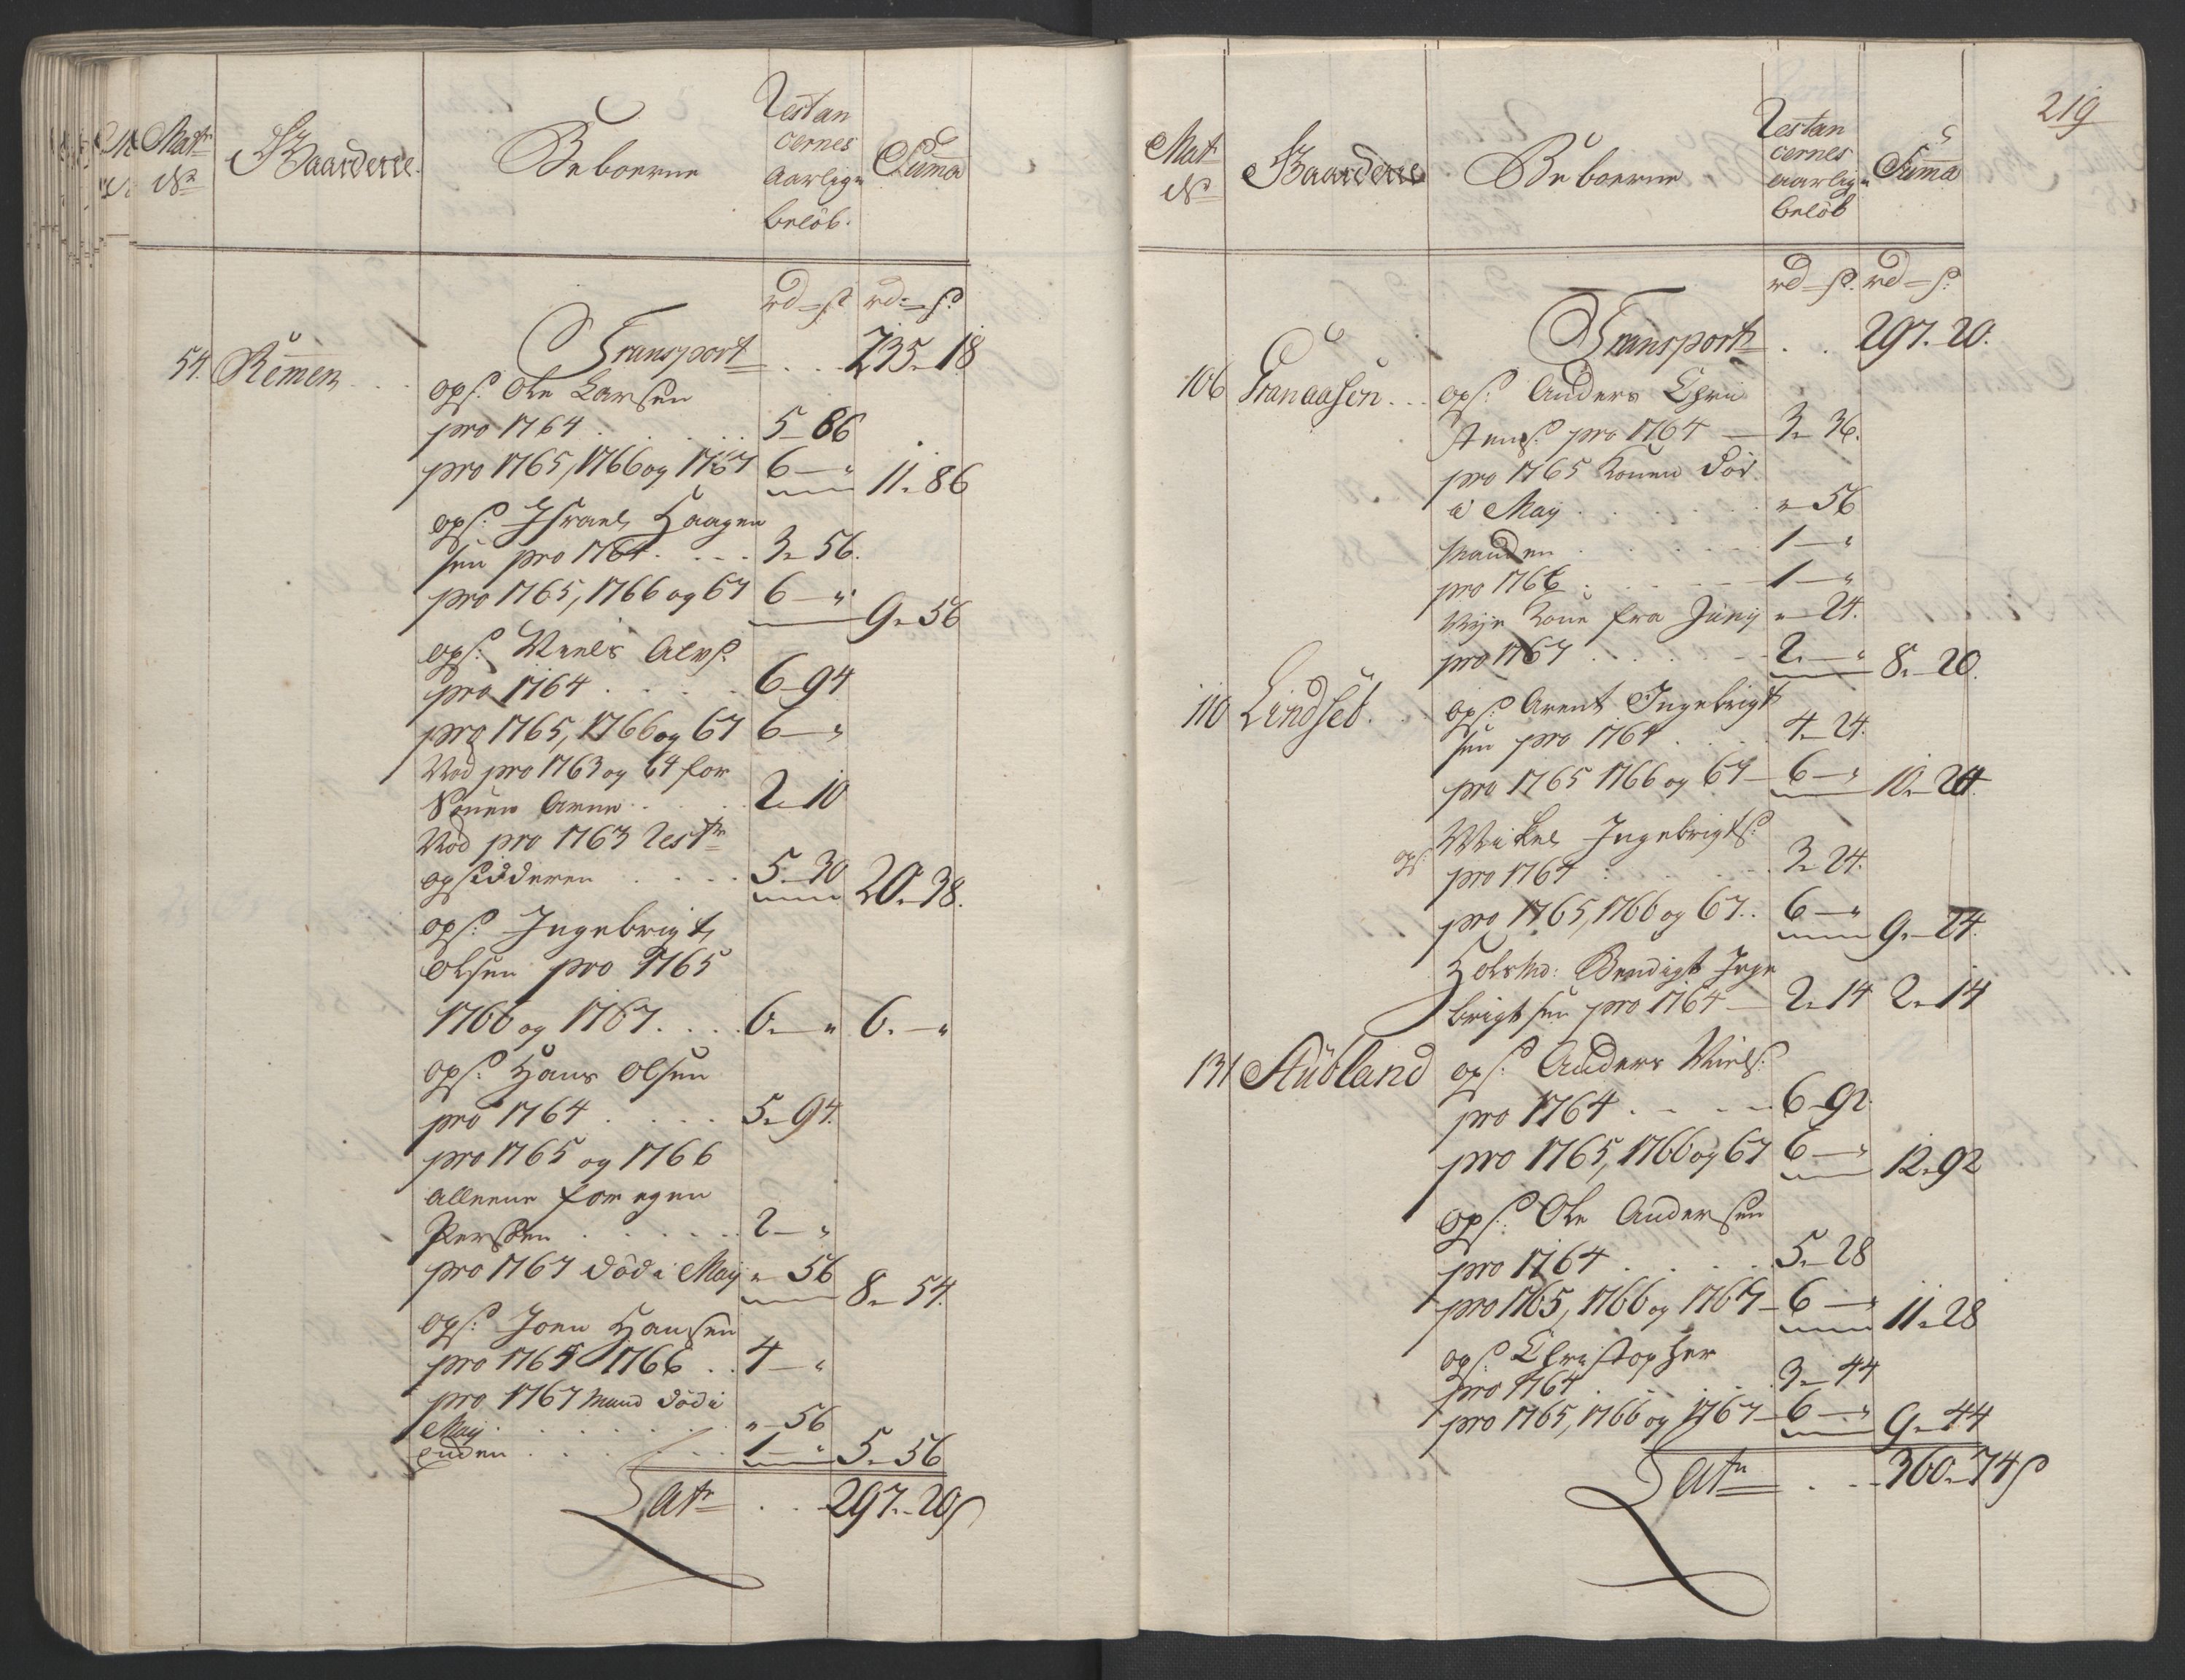 Matr
No
Gaardene.
Beboerne
Restan
cernes
Aarlige
beløb.
Summa
rd – ß rd – ß
Transport . . . 235 – 18
54. Remmen . . .
ops: Ole Larsen
pro 1764 . . . . . 5 – 86
pro 1765, 1766 og 1767 6 – " 11 – 86
ops: Israel Haagen
sen pro 1764 . . . . 3 – 56.
pro 1765, 1766 og 67 6 – " 9 – 56
ops: Niels Alvs:
pro 1764 . . . . . 6 – 94
pro 1765, 1766 og 67 6 – "
Nod pro 1763 og 64 for
Konen Anne . . . . 2 – 10
Nod pro 1763 Restr
opsidderen . . . . 5 – 30 20 – 38.
ops: Ingebrigt
Olsen pro 1765
1766 og 1767 . . . . 6. – " 6. – "
ops: Hans Olsen
pro 1764 . . . . . 5 – 94.
pro 1765 og 1766
alleene for egen
Persohn . . . . . . 2 – "
pro 1767 död i May " 56 8 – 54.
ops: Joen Hansen
pro 1765 1766 . . 4 – "
pro 1767 Mand död i
May . . . . . . . . " – 56
Enken . . . . . . . 1 – " 5 – 56
Latr . . . 297 – 20 ß
219
Mat
No
Gaardene
Beboerne
Restan
cernes
aarlige
beløb
Summa
rd – ß. rd – ß.
Transport . . 297. 20.
106 Tranaasen . . . ops: Anders Chri
stens: pro 1764 – 3 – 36.
pro 1765 Konen död
i May . . . . . . . " – 56
Manden . . . . . . 1 – "
pro 1766 . . . . . 1 – "
Nye Kone fra Junij " – 24.
pro 1767 . . . . . 2. – " 8. – 20.
110 Lindset . . ops: Arent Ingebrigt
sen pro 1764 . . . . 4 – 24.
pro 1765 1766 og 67 – 6 – " 10. – 24.
ops: Mikel Ingebrigts:
pro 1764 . . . . . . 3 – 24.
pro 1765, 1766 og 67. . 6 – " 9. – 24.
Bendigt Inge
brigtsen pro 1764 – 2 – 14 2 – 14
131 Stubland ops: Anders Niels:
pro 1764 . . . . . 6 – 92.
pro 1765, 1766 og 67 6 – " 12 – 92
ops: Ole Andersen
pro 1764 . . . . . 5. – 28
pro 1765, 1766 og 1767 – 6 – " 11 – 28
ops: Christopher
pro 1764 . . . . . 3 – 44
pro 1765, 1766 og 1767 – 6 – " 9 – 44
Latr . . . 360 – 74 ß